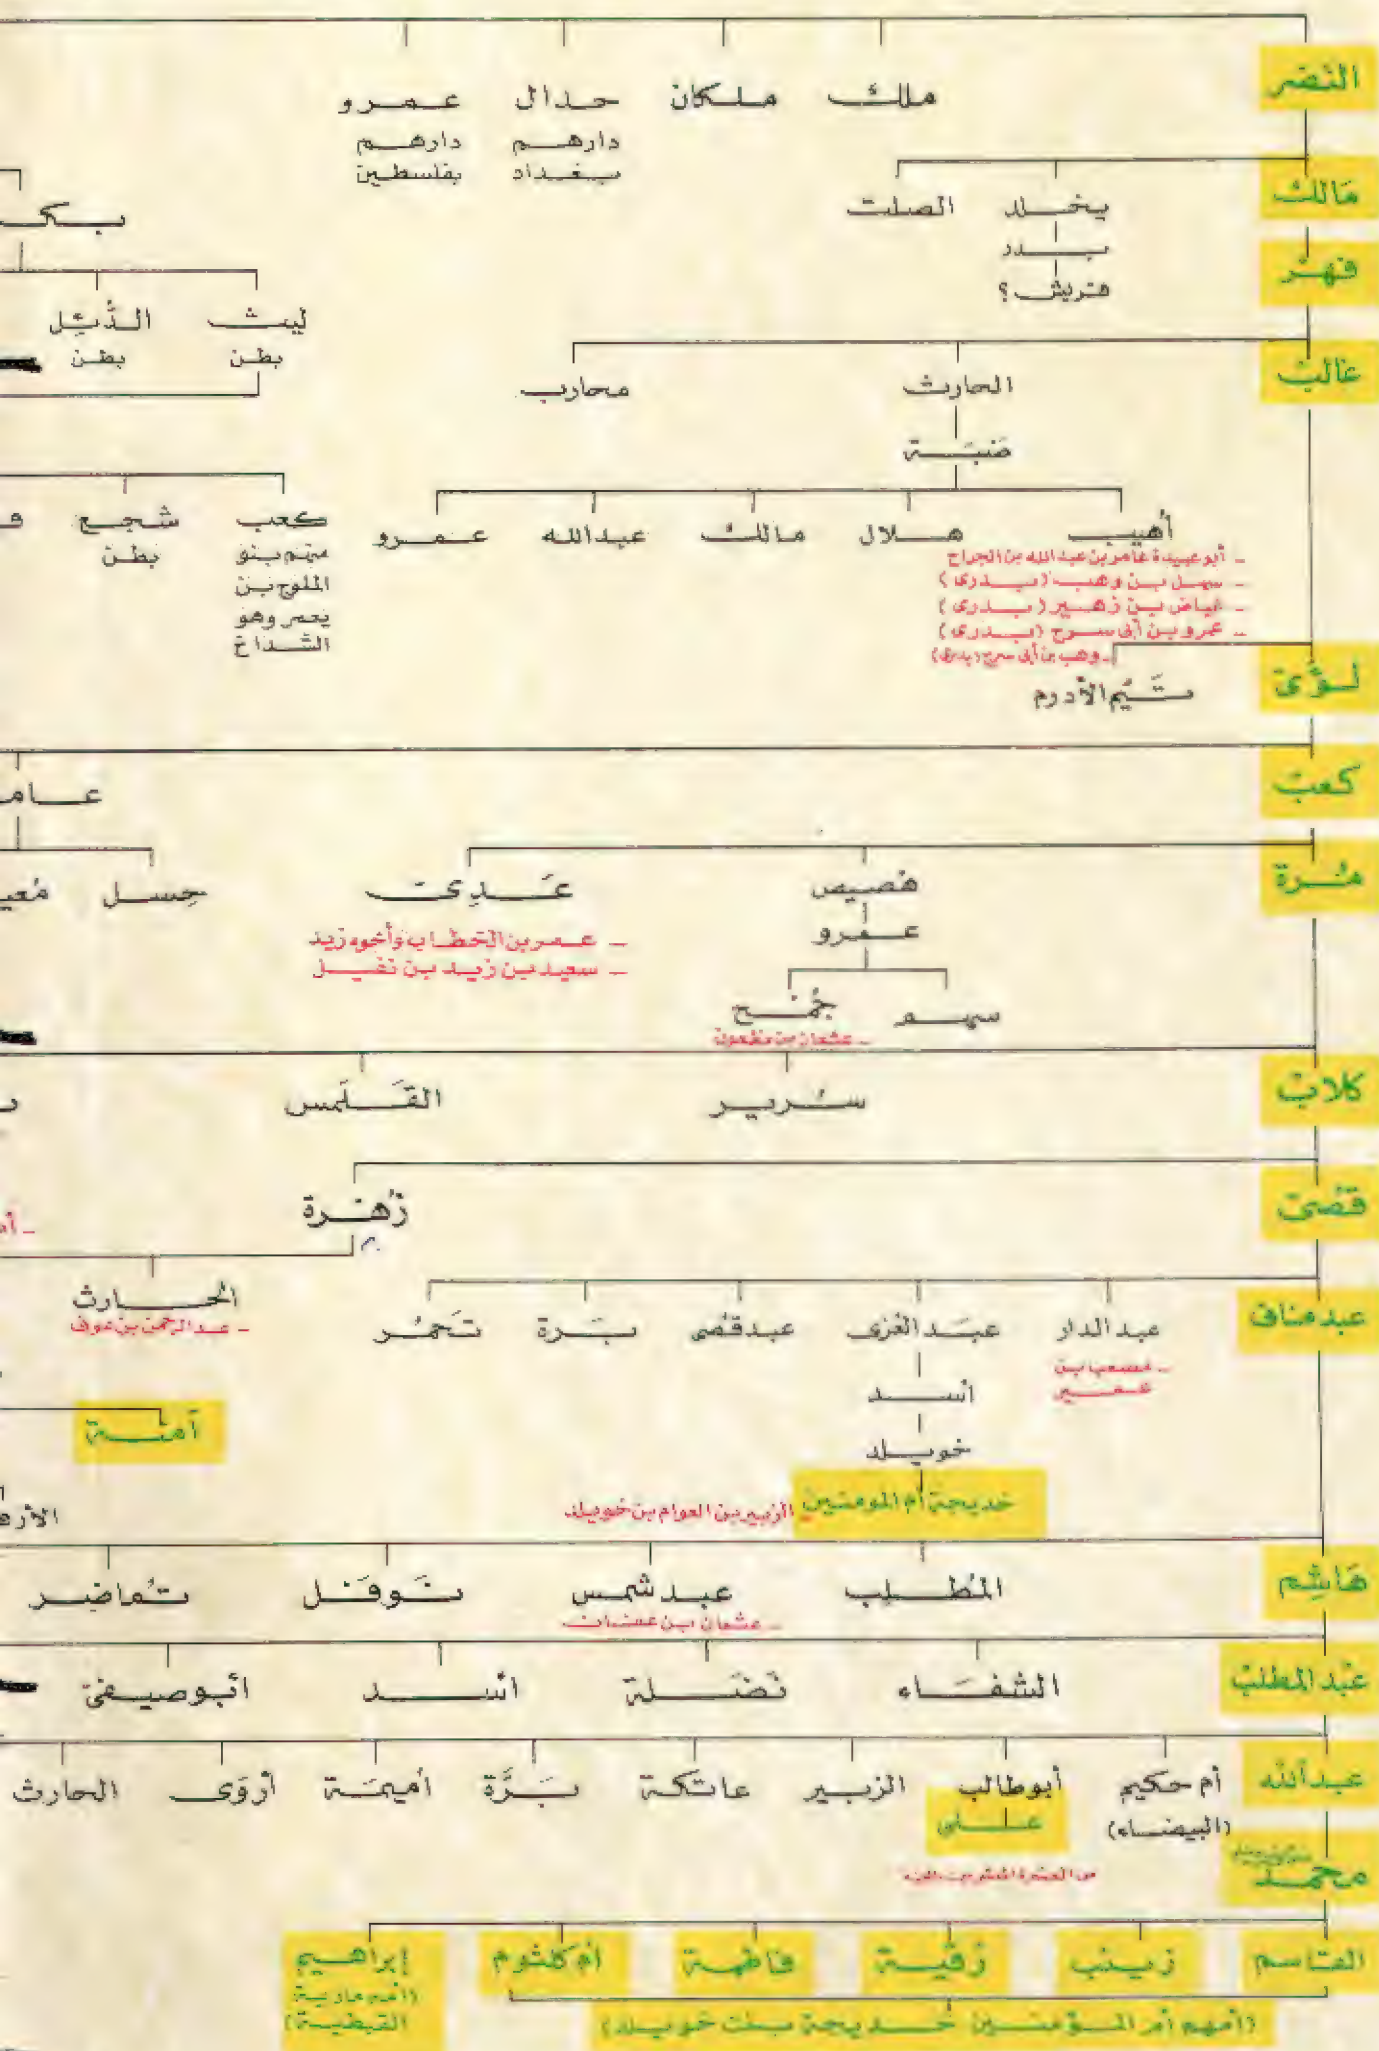 النضر
ملك ملكان حدال عمرو
دارهم دارهم
ببغداد بفلسطين
مَالك
يخلد الصلت
بدر
قريش؟
فهر
بكـ
ليث الدُّئِل
بطن بطن
غالب
الحارث محارب
ضَبَّة
أهيب هلال مالك عبدالله عمرو
- أبو عبيدة عامر بن عبد الله بن الجراح
- سهل بن وهب (بدرى)
- عياض بن زهير (بدرى)
- عمرو بن أبى سرح (بدرى)
- وهب بن أبى سرح (بدرى)
كعب شجع
منهم بنو بطن
الملوح بن
يعمر وهو
الشداخ
لؤى
تَيْم الأدرم
كعب
عامـ
مُرة
هصيص عَدِى حِسل مُعيـ
عمرو
- عمر بن الخطاب وأخوه زيد
- سعيد بن زيد بن نفيل
سهم جُمَح
- عثمان بن مظعون
كلاب
سُرير القَلَمس
قصى
زُهرة
الحارث
- عبد الرحمن بن عوف
عبد مناف
عبد الدار عبَد العُزى عبد قصى بَرة تَخمُر
- مصعب بن
عمير
أسد
خويلد
خديجة أم المومنين
الزبير بن العوام بن خويلد
آمنة
الأرقـ
هَاشِم
المُطلب عبد شمس نَوفَل تُماضِر
- عثمان بن عفان
عبد المطلب
الشفَاء نَضَلة أسد أبو صيفى
عبد الله
أم حكيم أبو طالب الزبير عاتكة بَرَّة أميمَة أروَى الحارث
(البيضاء) على
من العشرة المبشرين بالجنة
محمد
القاسم زينب رُقية فاطمة أم كلثوم إبراهيم
(أمه مارية
القبطية)
(أمهم أم المؤمنين خديجة بنت خويلد)